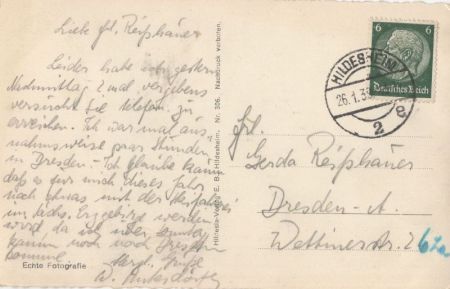 Liebe Frl. Reißhauer
Leider habe ich gestern
Nachmittag 2 mal vergebens
versucht Sie telefon. zu
erreichen. Ich war mal aus-
nahmsweise paar Stunden
in Dresden - Ich glaube kaum
daß es für mich dieses Jahr
noch etwas mit der
wird, da ich über
kaum noch nach Dresden
komme. Herzl. Grüße
W.
Echte Fotografie
Hildesia-Verlag E. B., Hildesheim. Nr. 306. Nachdruck verboten.
6 6
Deutsches Reich
HILDESHEIM
26.1.3
2 e
Frl.
Gerda Reißhauer
Dresden-A.
Wettinerstr.